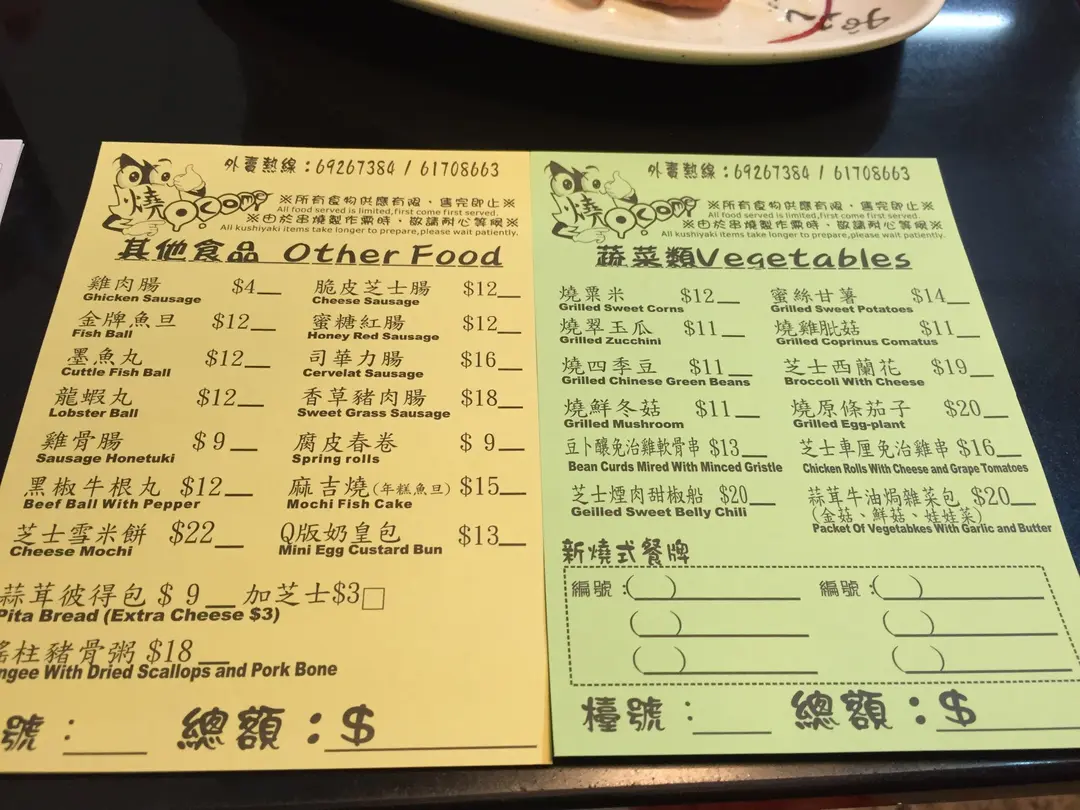 外賣熱線：69267384 / 61708663
燒
※所有食物供應有限，售完即止※
All food served is limited,first come first served.
※由於串燒製作需時，敬請耐心等候※
All kushiyaki items take longer to prepare,please wait patiently.
其他食品 Other Food
雞肉腸 $4__ 脆皮芝士腸 $12__
Ghicken Sausage Cheese Sausage
金牌魚旦 $12__ 蜜糖紅腸 $12__
Fish Ball Honey Red Sausage
墨魚丸 $12__ 司華力腸 $16__
Cuttle Fish Ball Cervelat Sausage
龍蝦丸 $12__ 香草豬肉腸 $18__
Lobster Ball Sweet Grass Sausage
雞骨腸 $9__ 腐皮春卷 $9__
Sausage Honetuki Spring rolls
黑椒牛根丸 $12__ 麻吉燒(年糕魚旦) $15__
Beef Ball With Pepper Mochi Fish Cake
芝士雪米餅 $22__ Q版奶皇包 $13__
Cheese Mochi Mini Egg Custard Bun
蒜茸彼得包 $9__ 加芝士$3□
Pita Bread (Extra Cheese $3)
瑤柱豬骨粥 $18__
ngee With Dried Scallops and Pork Bone
號：____ 總額：$________
外賣熱線：69267384 / 61708663
燒
※所有食物供應有限，售完即止※
All food served is limited,first come first served.
※由於串燒製作需時，敬請耐心等候※
All kushiyaki items take longer to prepare,please wait patiently.
蔬菜類Vegetables
燒粟米 $12__ 蜜絲甘薯 $14__
Grilled Sweet Corns Grilled Sweet Potatoes
燒翠玉瓜 $11__ 燒雞肶菇 $11__
Grilled Zucchini Grilled Coprinus Comatus
燒四季豆 $11__ 芝士西蘭花 $19__
Grilled Chinese Green Beans Broccoli With Cheese
燒鮮冬菇 $11__ 燒原條茄子 $20__
Grilled Mushroom Grilled Egg-plant
豆卜釀免治雞軟骨串 $13__ 芝士車厘免治雞串 $16__
Bean Curds Mired With Minced Gristle Chicken Rolls With Cheese and Grape Tomatoes
芝士煙肉甜椒船 $20__ 蒜茸牛油焗雜菜包 $20__
Geilled Sweet Belly Chili (金菇、鮮菇、娃娃菜)
Packet Of Vegetabkes With Garlic and Butter
新燒式餐牌
編號：( )________ 編號：( )________
( )________ ( )________
( )________ ( )________
檯號：____ 總額：$________